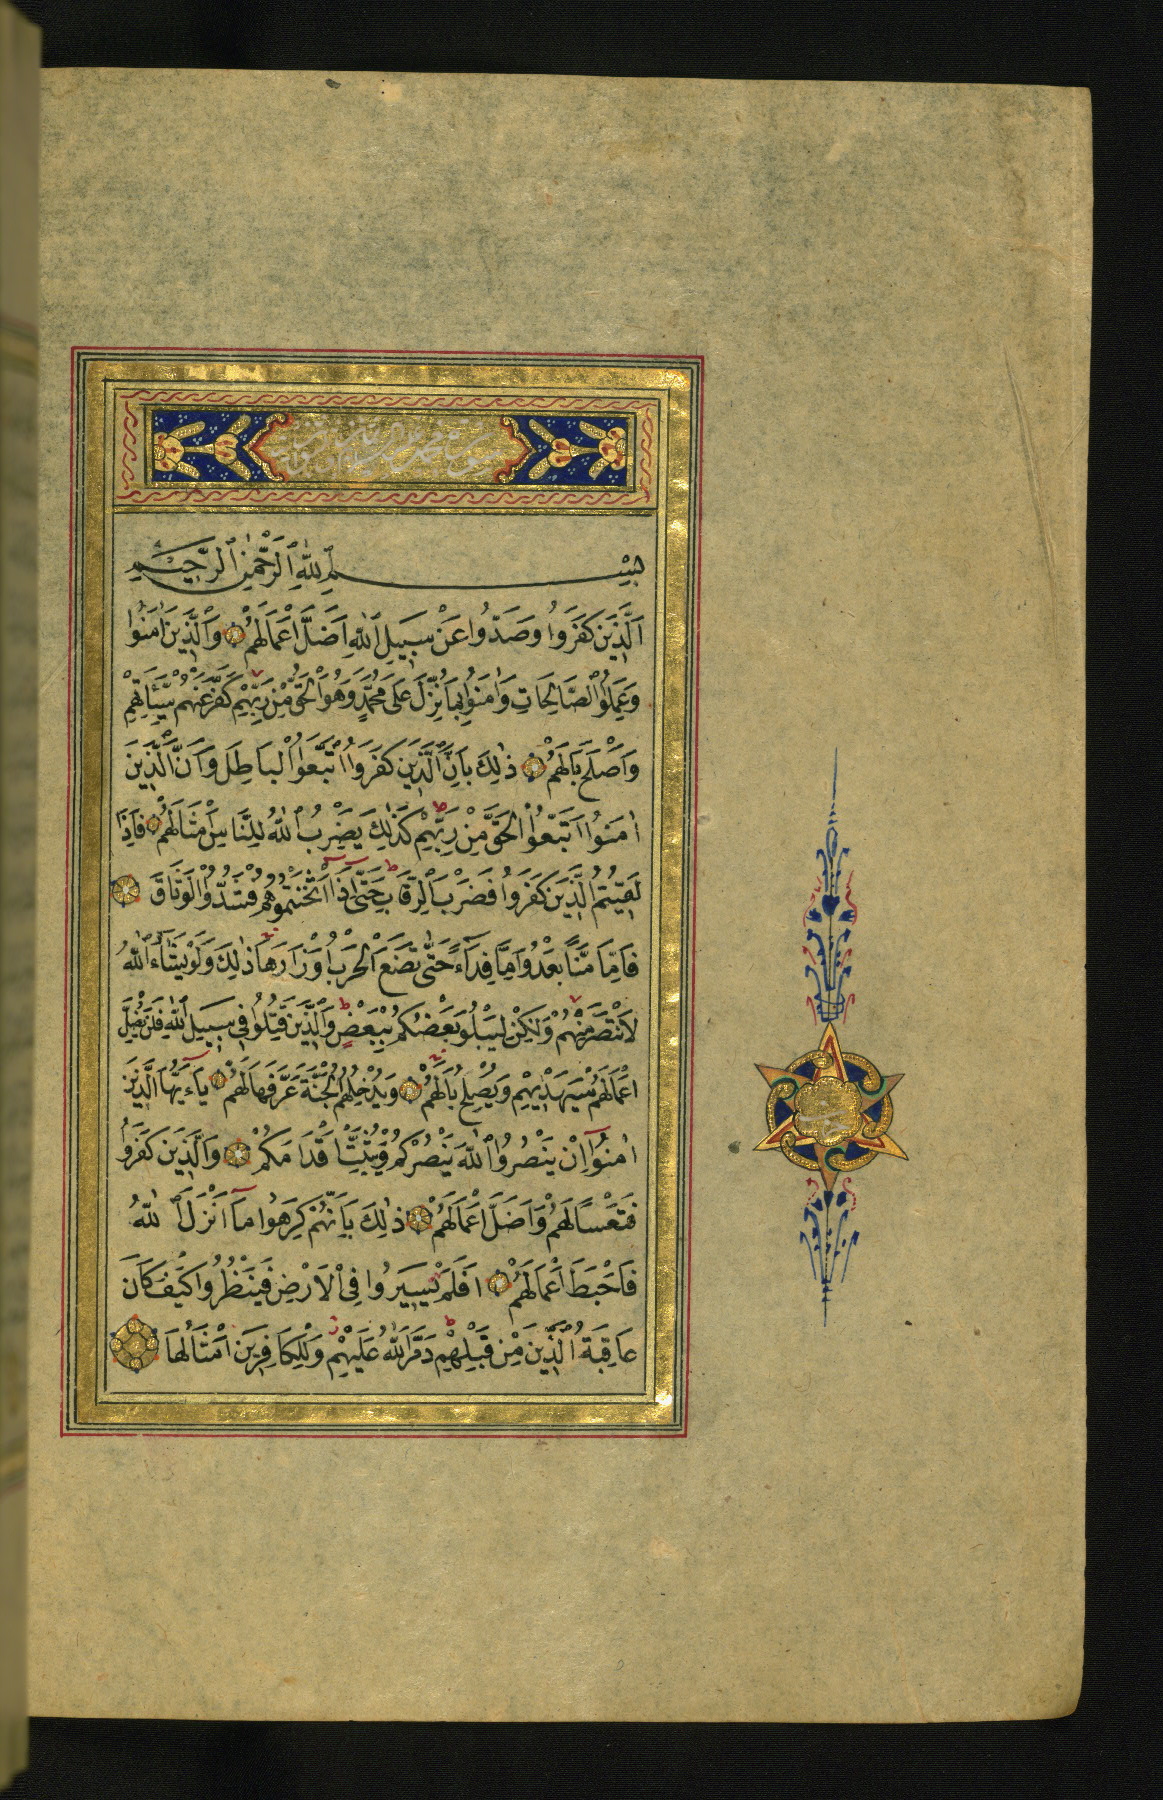 بِسْمِ ٱللّٰهِ ٱلرَّحْمٰنِ ٱلرَّحِيمِ
اَلَّذِينَ كَفَرُوا وَصَدُّوا عَنْ سَبِيلِ ٱللّٰهِ اَضَلَّ اَعْمَالَهُمْ وَٱلَّذِينَ اٰمَنُوا
وَعَمِلُوا ٱلصَّالِحَاتِ وَاٰمَنُوا بِمَا نُزِّلَ عَلَى مُحَمَّدٍ وَهُوَ ٱلْحَقُّ مِنْ رَبِّهِمْ كَفَّرَ عَنْهُمْ سَيِّئَاتِهِمْ
وَاَصْلَحَ بَالَهُمْ ذٰلِكَ بِاَنَّ ٱلَّذِينَ كَفَرُوا ٱتَّبَعُوا ٱلْبَاطِلَ وَاَنَّ ٱلَّذِينَ
اٰمَنُوا ٱتَّبَعُوا ٱلْحَقَّ مِنْ رَبِّهِمْ كَذٰلِكَ يَضْرِبُ ٱللّٰهُ لِلنَّاسِ اَمْثَالَهُمْ فَاِذَا
لَقِيتُمُ ٱلَّذِينَ كَفَرُوا فَضَرْبَ ٱلرِّقَابِ حَتّٰى اِذَا اَثْخَنْتُمُوهُمْ فَشُدُّوا ٱلْوَثَاقَ
فَاِمَّا مَنًّا بَعْدُ وَاِمَّا فِدَاءً حَتّٰى تَضَعَ ٱلْحَرْبُ اَوْزَارَهَا ذٰلِكَ وَلَوْ يَشَاءُ ٱللّٰهُ
لَانْتَصَرَ مِنْهُمْ وَلٰكِنْ لِيَبْلُوَ بَعْضَكُمْ بِبَعْضٍ وَٱلَّذِينَ قُتِلُوا فِي سَبِيلِ ٱللّٰهِ فَلَنْ يُضِلَّ
اَعْمَالَهُمْ سَيَهْدِيهِمْ وَيُصْلِحُ بَالَهُمْ وَيُدْخِلُهُمُ ٱلْجَنَّةَ عَرَّفَهَا لَهُمْ يَاءَيُّهَا ٱلَّذِينَ
اٰمَنُوا اِنْ يَنْصُرُوا ٱللّٰهَ يَنْصُرْكُمْ وَيُثَبِّتْ اَقْدَامَكُمْ وَٱلَّذِينَ كَفَرُوا
فَتَعْسًا لَهُمْ وَاَضَلَّ اَعْمَالَهُمْ ذٰلِكَ بِاَنَّهُمْ كَرِهُوا مَا اَنْزَلَ ٱللّٰهُ
فَاَحْبَطَ اَعْمَالَهُمْ اَفَلَمْ يَسِيرُوا فِي ٱلْاَرْضِ فَيَنْظُرُوا كَيْفَ كَانَ
عَاقِبَةُ ٱلَّذِينَ مِنْ قَبْلِهِمْ دَمَّرَ ٱللّٰهُ عَلَيْهِمْ وَلِلْكَافِرِينَ اَمْثَالُهَا